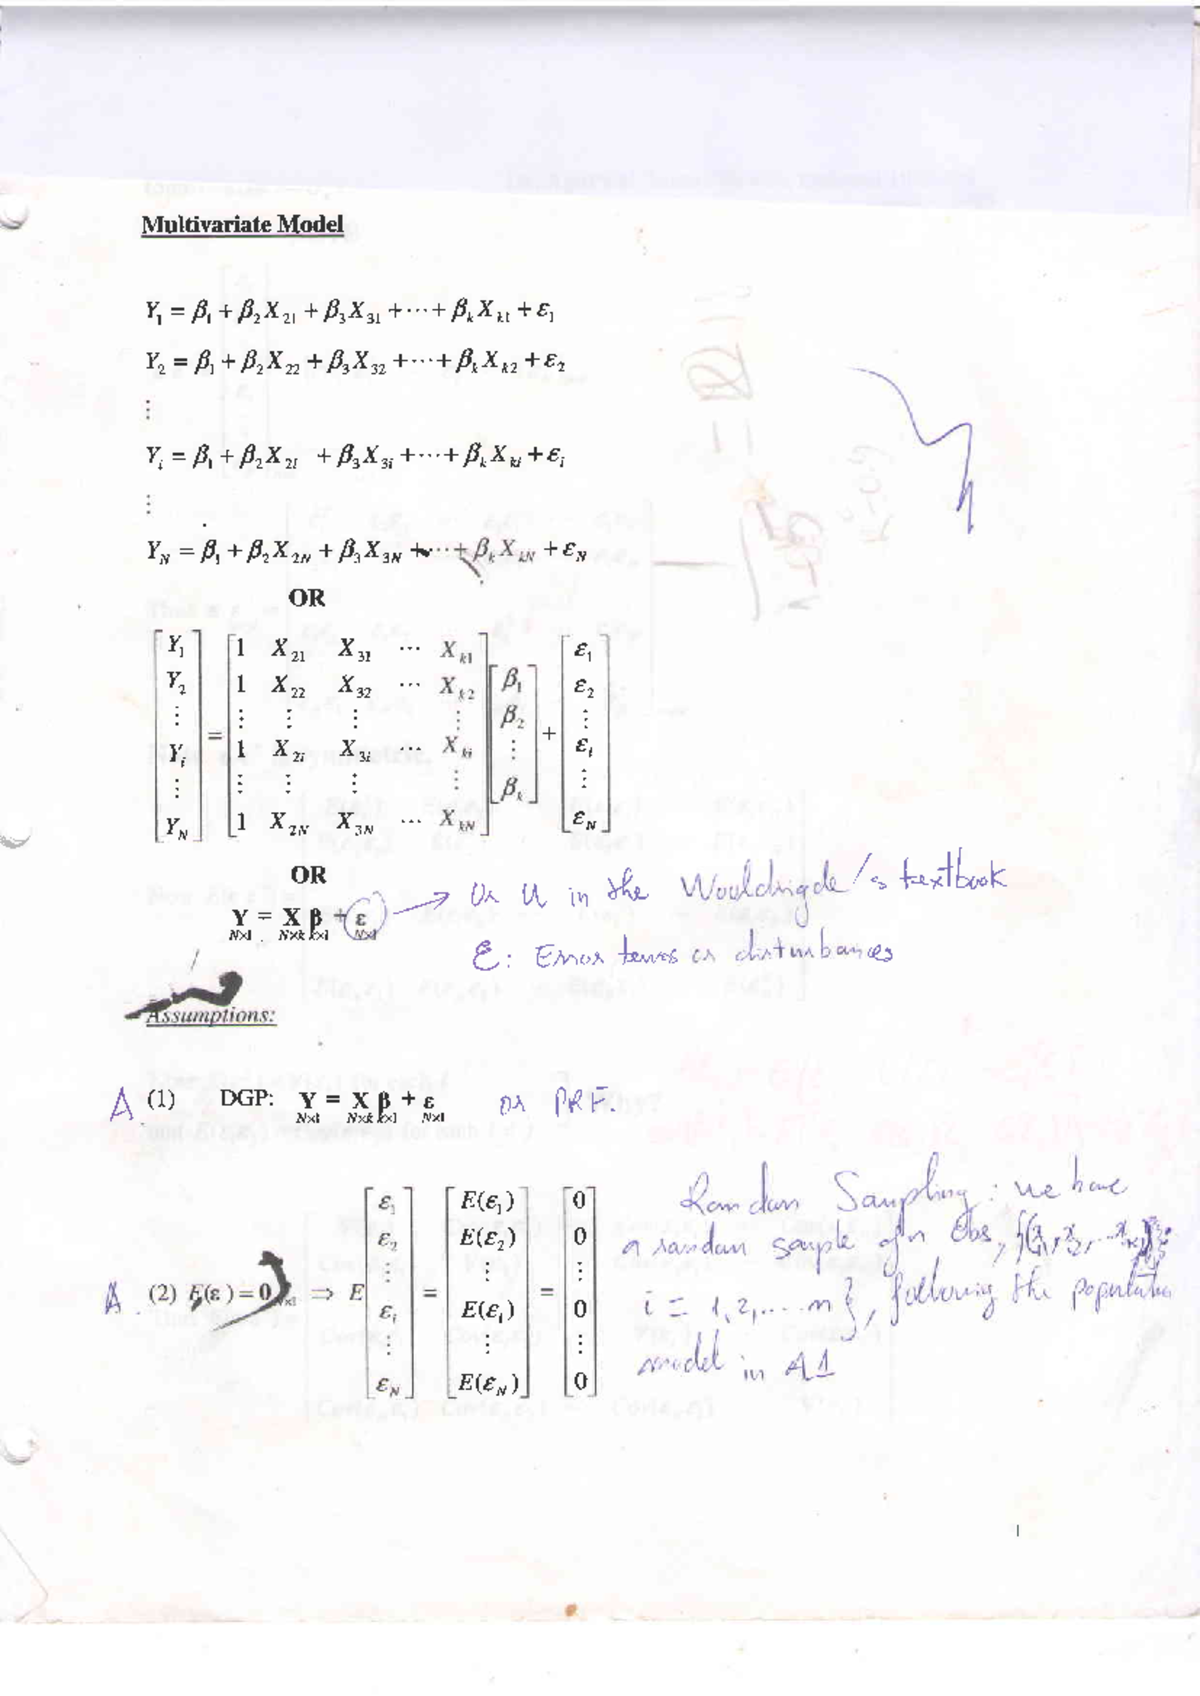 Multivariate Model
Y₁ = β₁ + β₂X₂₁ + β₃X₃₁ + ⋯ + βₖXₖ₁ + ε₁
Y₂ = β₁ + β₂X₂₂ + β₃X₃₂ + ⋯ + βₖXₖ₂ + ε₂
⋮
Yᵢ = β₁ + β₂X₂ᵢ + β₃X₃ᵢ + ⋯ + βₖXₖᵢ + εᵢ
⋮
Y_N = β₁ + β₂X₂N + β₃X₃N + ⋯ + βₖXₖN + ε_N
OR
[Y₁ Y₂ ⋮ Yᵢ ⋮ Y_N] = [1 X₂₁ X₃₁ ⋯ Xₖ₁; 1 X₂₂ X₃₂ ⋯ Xₖ₂; ⋮ ⋮ ⋮ ⋮; 1 X₂ᵢ X₃ᵢ ⋯ Xₖᵢ; ⋮ ⋮ ⋮ ⋮; 1 X₂N X₃N ⋯ XₖN] [β₁ β₂ ⋮ βₖ] + [ε₁ ε₂ ⋮ εᵢ ⋮ ε_N]
OR
Y = X β + ε → Or U in the Wouldrigde/s textbook
N×1 N×k k×1 N×1
ε: Error terms or disturbances
Assumptions:
A (1) DGP: Y = X β + ε or PRF.
N×1 N×k k×1 N×1
A. (2) E(ε) = 0 N×1 ⇒ E[ε₁ ε₂ ⋮ εᵢ ⋮ ε_N] = [E(ε₁) E(ε₂) ⋮ E(εᵢ) ⋮ E(ε_N)] = [0 0 ⋮ 0 ⋮ 0]
Random Sampling: we have
a random sample of n obs,
i = 1,2,....n}, following the population
model in A1
1